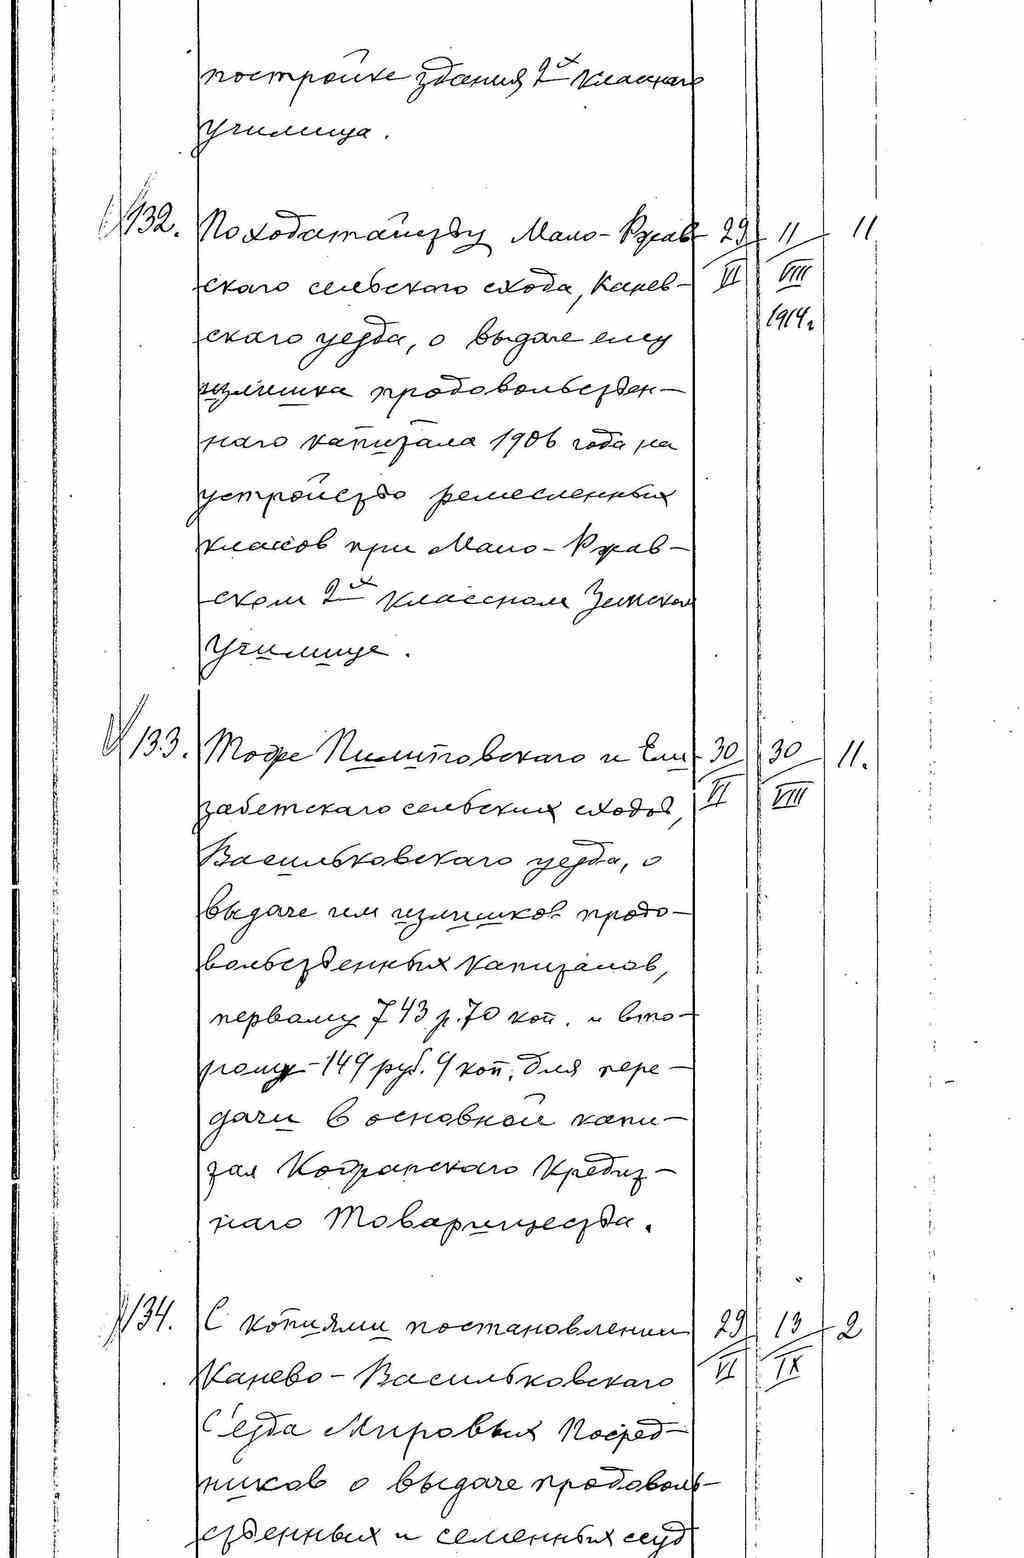 постройке здания 2х классного
училища.
132. По ходатайству Мало-Ржав- 29/VI 11/VIII 1914г 11
скаго сельского схода, Канев-
скаго уезда, о выдаче ему
излишка продовольствен-
наго капитала 1906 года на
устройство ремесленных
класов при Мало-Ржав-
ском 2х классном Земском
Училище.
133. Тоже Пилиповскаго и Ели- 30/VI 30/VIII 11.
забетскаго сельских сходов,
Васильковскаго уезда, о
выдаче им излишков продо-
вольственных капиталов,
первому 743 р. 70 коп. и вто-
рому - 149 руб. 9 коп. для пере-
дачи в основной капи-
тал Кредит-
наго Товарищества.
134. С копиями постановлении 29/VI 13/IX 2
Канево-Васильковскаго
С'езда Мировых Посред-
ников о выдаче продоволь-
ственных и семенных ссуд